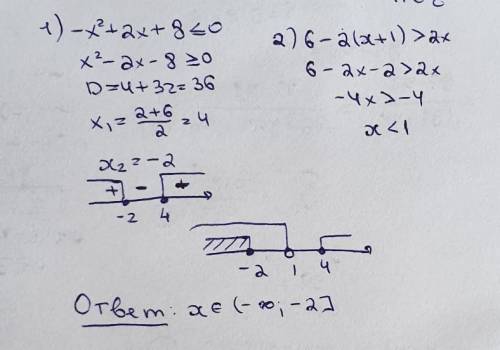 1) -x²+2x+8≤0
x²-2x-8≥0
D=4+32=36
x₁=(2+6)/2=4
x₂=-2
+ - +
-2 4
2) 6-2(x+1)>2x
6-2x-2>2x
-4x>-4
x<1
-2 1 4
Ответ: x∈(-∞;-2]